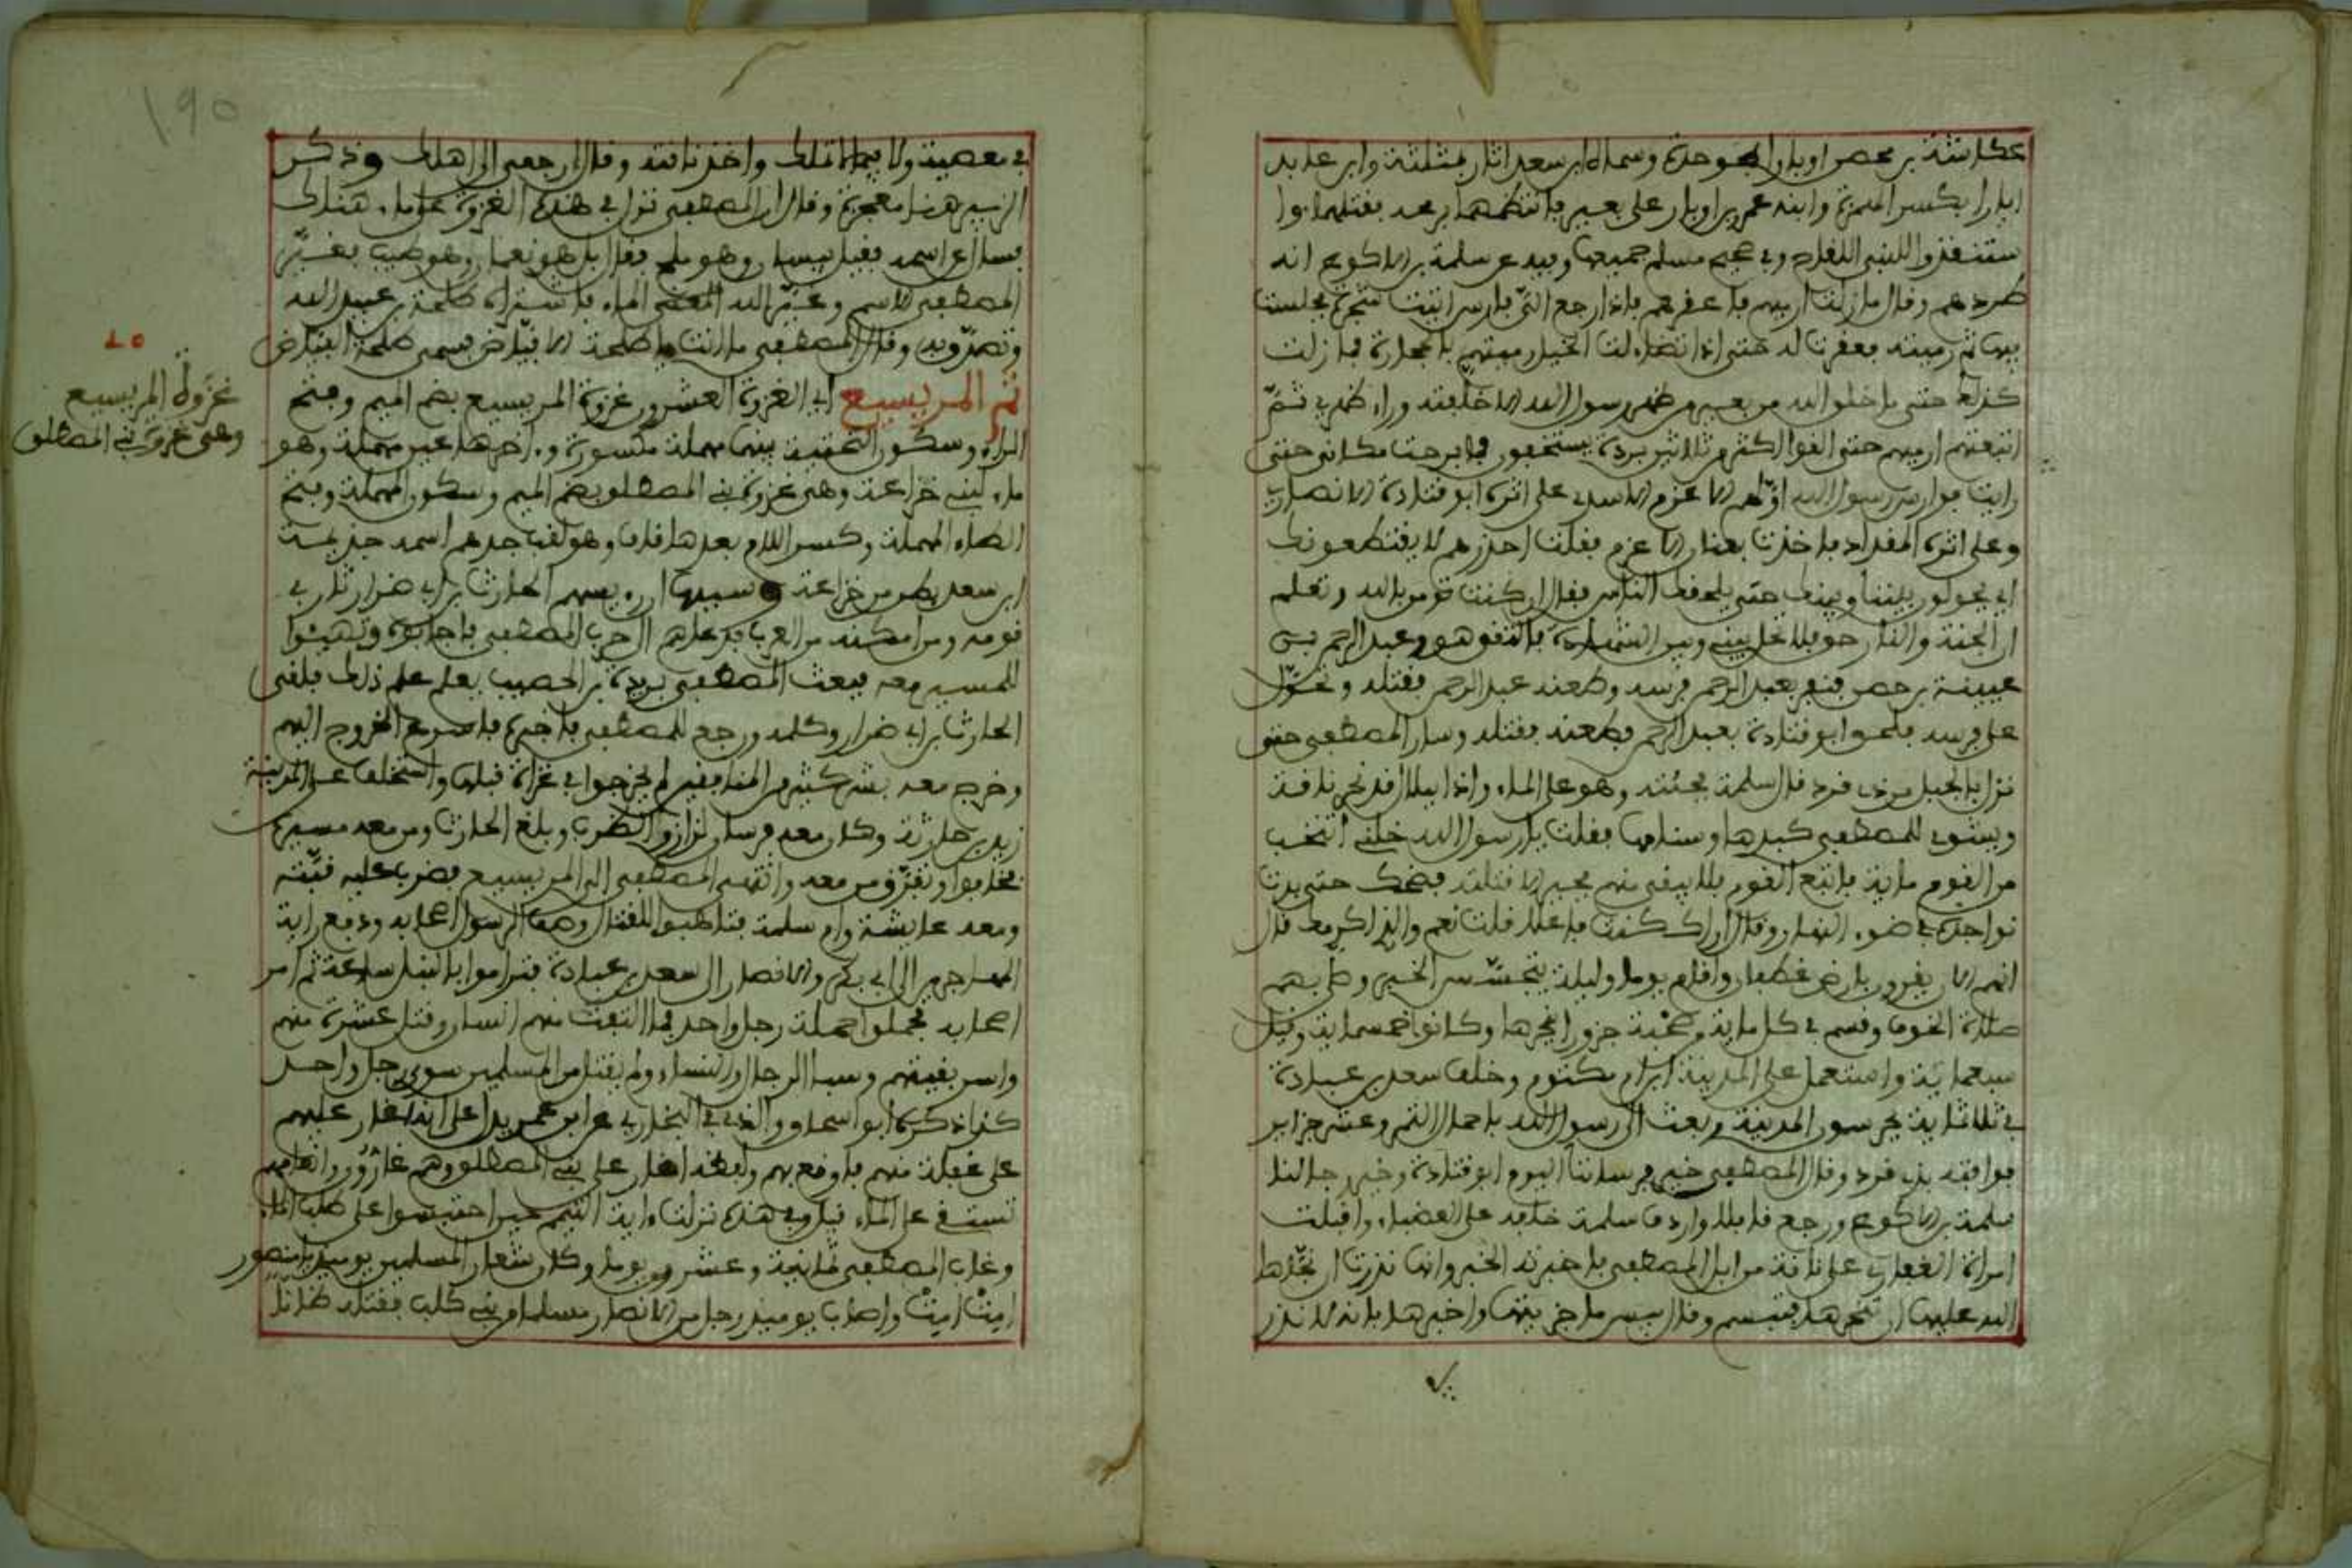 عكاشة بن محصن اوبارا بموحدة وسماه ابن سعد اثار بمثلثة وابن عايد
ابارا بكسر الهمزة وابنه عمرو بن اوبار على بعير فانتظمهما برمحه فقتلهما وا
ستنقذوا للنبي اللقاح وفي صحيح مسلم جميعها وفيه عن سلمة بن الاكوع انه
طردهم وقال ما زلت ارميهم فاعقرهم فاذا رجع الي فارس اتيت شجرة فجلست
فيها ثم رميته فعقرت له حتى اذا تضايقت الخيل رميتهم بالحجارة فما زلت
كذلك حتى ما خلق الله من بعير من ظهر رسول الله الا خلفته وراء ظهري ثم
اتبعتهم ارميهم حتى القوا اكثر من ثلاثين بردة يستخفون فما برحت مكاني حتى
رايت فوارس رسول الله اولهم الاخرم الاسدي على اثره ابو قتادة الانصاري
وعلى اثره المقداد فاخذت بعنان الاخرم فقلت احذرهم لا يقتطعونك
اي يحولون بيننا وبينك حتى يلحق الناس فقال ان كنت تومن بالله وتعلم
ان الجنة والنار حق فلا تحل بيني وبين الشهادة فالتقى هو وعبد الرحمن بن
عيينة بن حصن فعقر بعبد الرحمن فرسه وطعنه عبد الرحمن فقتله وتحول
على فرسه فلحق ابو قتادة بعبد الرحمن فطعنه فقتله وسار المصطفى حتى
نزل بالجبل من ذي قرد قال سلمة فجئته وهو على الماء واذا بلال قد نحر ناقة
ويشوي للمصطفى كبدها وسنامها فقلت يا رسول الله خلني انتخب
من القوم ماية فاتبع القوم فلا يبقى منهم مخبر الا قتلته فضحك حتى بدت
نواجذه في ضوء النهار وقال اراك كنت فاعلا قلت نعم والذي اكرمك قال
انهم الان يقرون بارض غطفان واقام يوما وليلة يتحسس الخبر وصلى بهم
صلاة الخوف وقسم في كل ماية من صحبه جزورا ينحرها وكانوا خمسماية وقيل
سبعماية واستعمل على المدينة ابن ام مكتوم وخلف سعد بن عبادة
في ثلاثماية يحرسون المدينة وبعث الى رسول الله باحمال التمر وعشر جزاير
فوافته بذي قرد وقال المصطفى خير فرساننا اليوم ابو قتادة وخير رجالنا
سلمة بن الاكوع ورجع قافلا واردف سلمة خلفه على العضباء واقبلت
امراة الغفاري على ناقة من ابل المصطفى فاخبرته الخبر وانها نذرت ان نجاها
الله عليها ان تنحرها فتبسم وقال بيس ما جزيتها واخبرها بانه لا نذر
في معصية ولا فيما لا تملك واخذ ناقته وقال ارجعي الى اهلك وذكر
الزبير هنا معجزة وقال ان المصطفى نزل في هذه الغزوة على ماء هنالك
فسال عن اسمه فقيل بيسان وهو ملح فقال بل هو نعمان وهو طيب فغير
المصطفى الاسم وغير الله الماء فاشتراه طلحة بن عبيد الله
وتصدق به وقال المصطفى ما انت يا طلحة الا فياض فسمي طلحة الفياض
ثم المريسيع اي الغزوة العشرون غزوة المريسيع بضم الميم وفتح
الراء وسكون التحتية بينها مهملة مكسورة واخرها عين مهملة وهو
ماء لبني خزاعة وهي غزوة بني المصطلق بضم الميم وسكون المهملة وفتح
الطاء المهملة وكسر اللام بعدها قاف وهو لقب جدهم اسمه جذيمة
ابن سعد بطن من خزاعة وسببها ان ريسهم الحارث بن ابي ضرار سار في
قومه ومن امكنه من العرب فدعاهم الى حرب المصطفى فاجابوه وتهيئوا
للمسير معه فبعث المصطفى بريدة بن الحصيب يعلم علم ذلك فلقي
الحارث بن ابي ضرار وكلمه ورجع للمصطفى فاخبره فاسرع الخروج اليهم
وخرج معه بشر كثير من المنافقين لم يخرجوا في غزاة قبلها واستخلف على المدينة
زيد بن حارثة وكان معه فرسان لزاز والظرب وبلغ الحارث ومن معه مسيره
فخافوا وتفرق من معه وانتهى المصطفى الى المريسيع فضرب عليه قبته
ومعه عايشة وام سلمة فتاهبوا للقتال وصف الرسول اصحابه ودفع راية
المهاجرين الى ابي بكر والانصار الى سعد بن عبادة فتراموا بالنبل ساعة ثم امر
اصحابه فحملوا حملة رجل واحد فما التفت منهم انسان وقتل عشرة منهم
واسر بقيتهم وسبا الرجال والنساء ولم يقتل من المسلمين سوى رجل واحد
كذا ذكره ابن اسحاق والذي في البخاري عن ابن عمر يدل على انه اغار عليهم
على غفلة منهم فاوقع بهم ولفظه اغار على بني المصطلق وهم غارون وانعامهم
تستقى على الماء قيل وفي هذه نزلت ءاية التيمم حين احتبسوا على طلب الماء
وغاب المصطفى ثمانية وعشرين يوما وكان شعار المسلمين يوميذ يا منصور
امت امت واصاب يوميذ رجل من الانصار مسلما من بني كلب فقتله ظانا
٢٠
غزوة المريسيع
وهي غزوة بني المصطلق
١٩٥